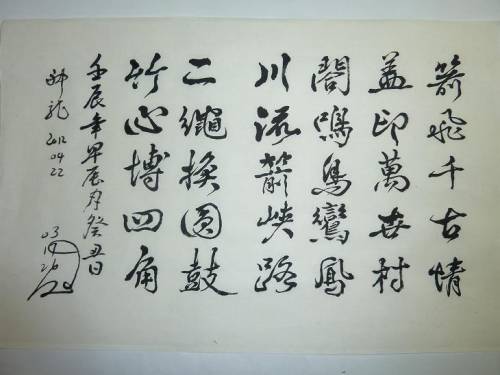 箭飛千古情
蓋印萬世村
閣鳴鳥鸞鳳
川流箭峽路
二繩換圓鼓
竹心博四角
壬辰年甲辰月癸丑日
師龍
2012
04
22